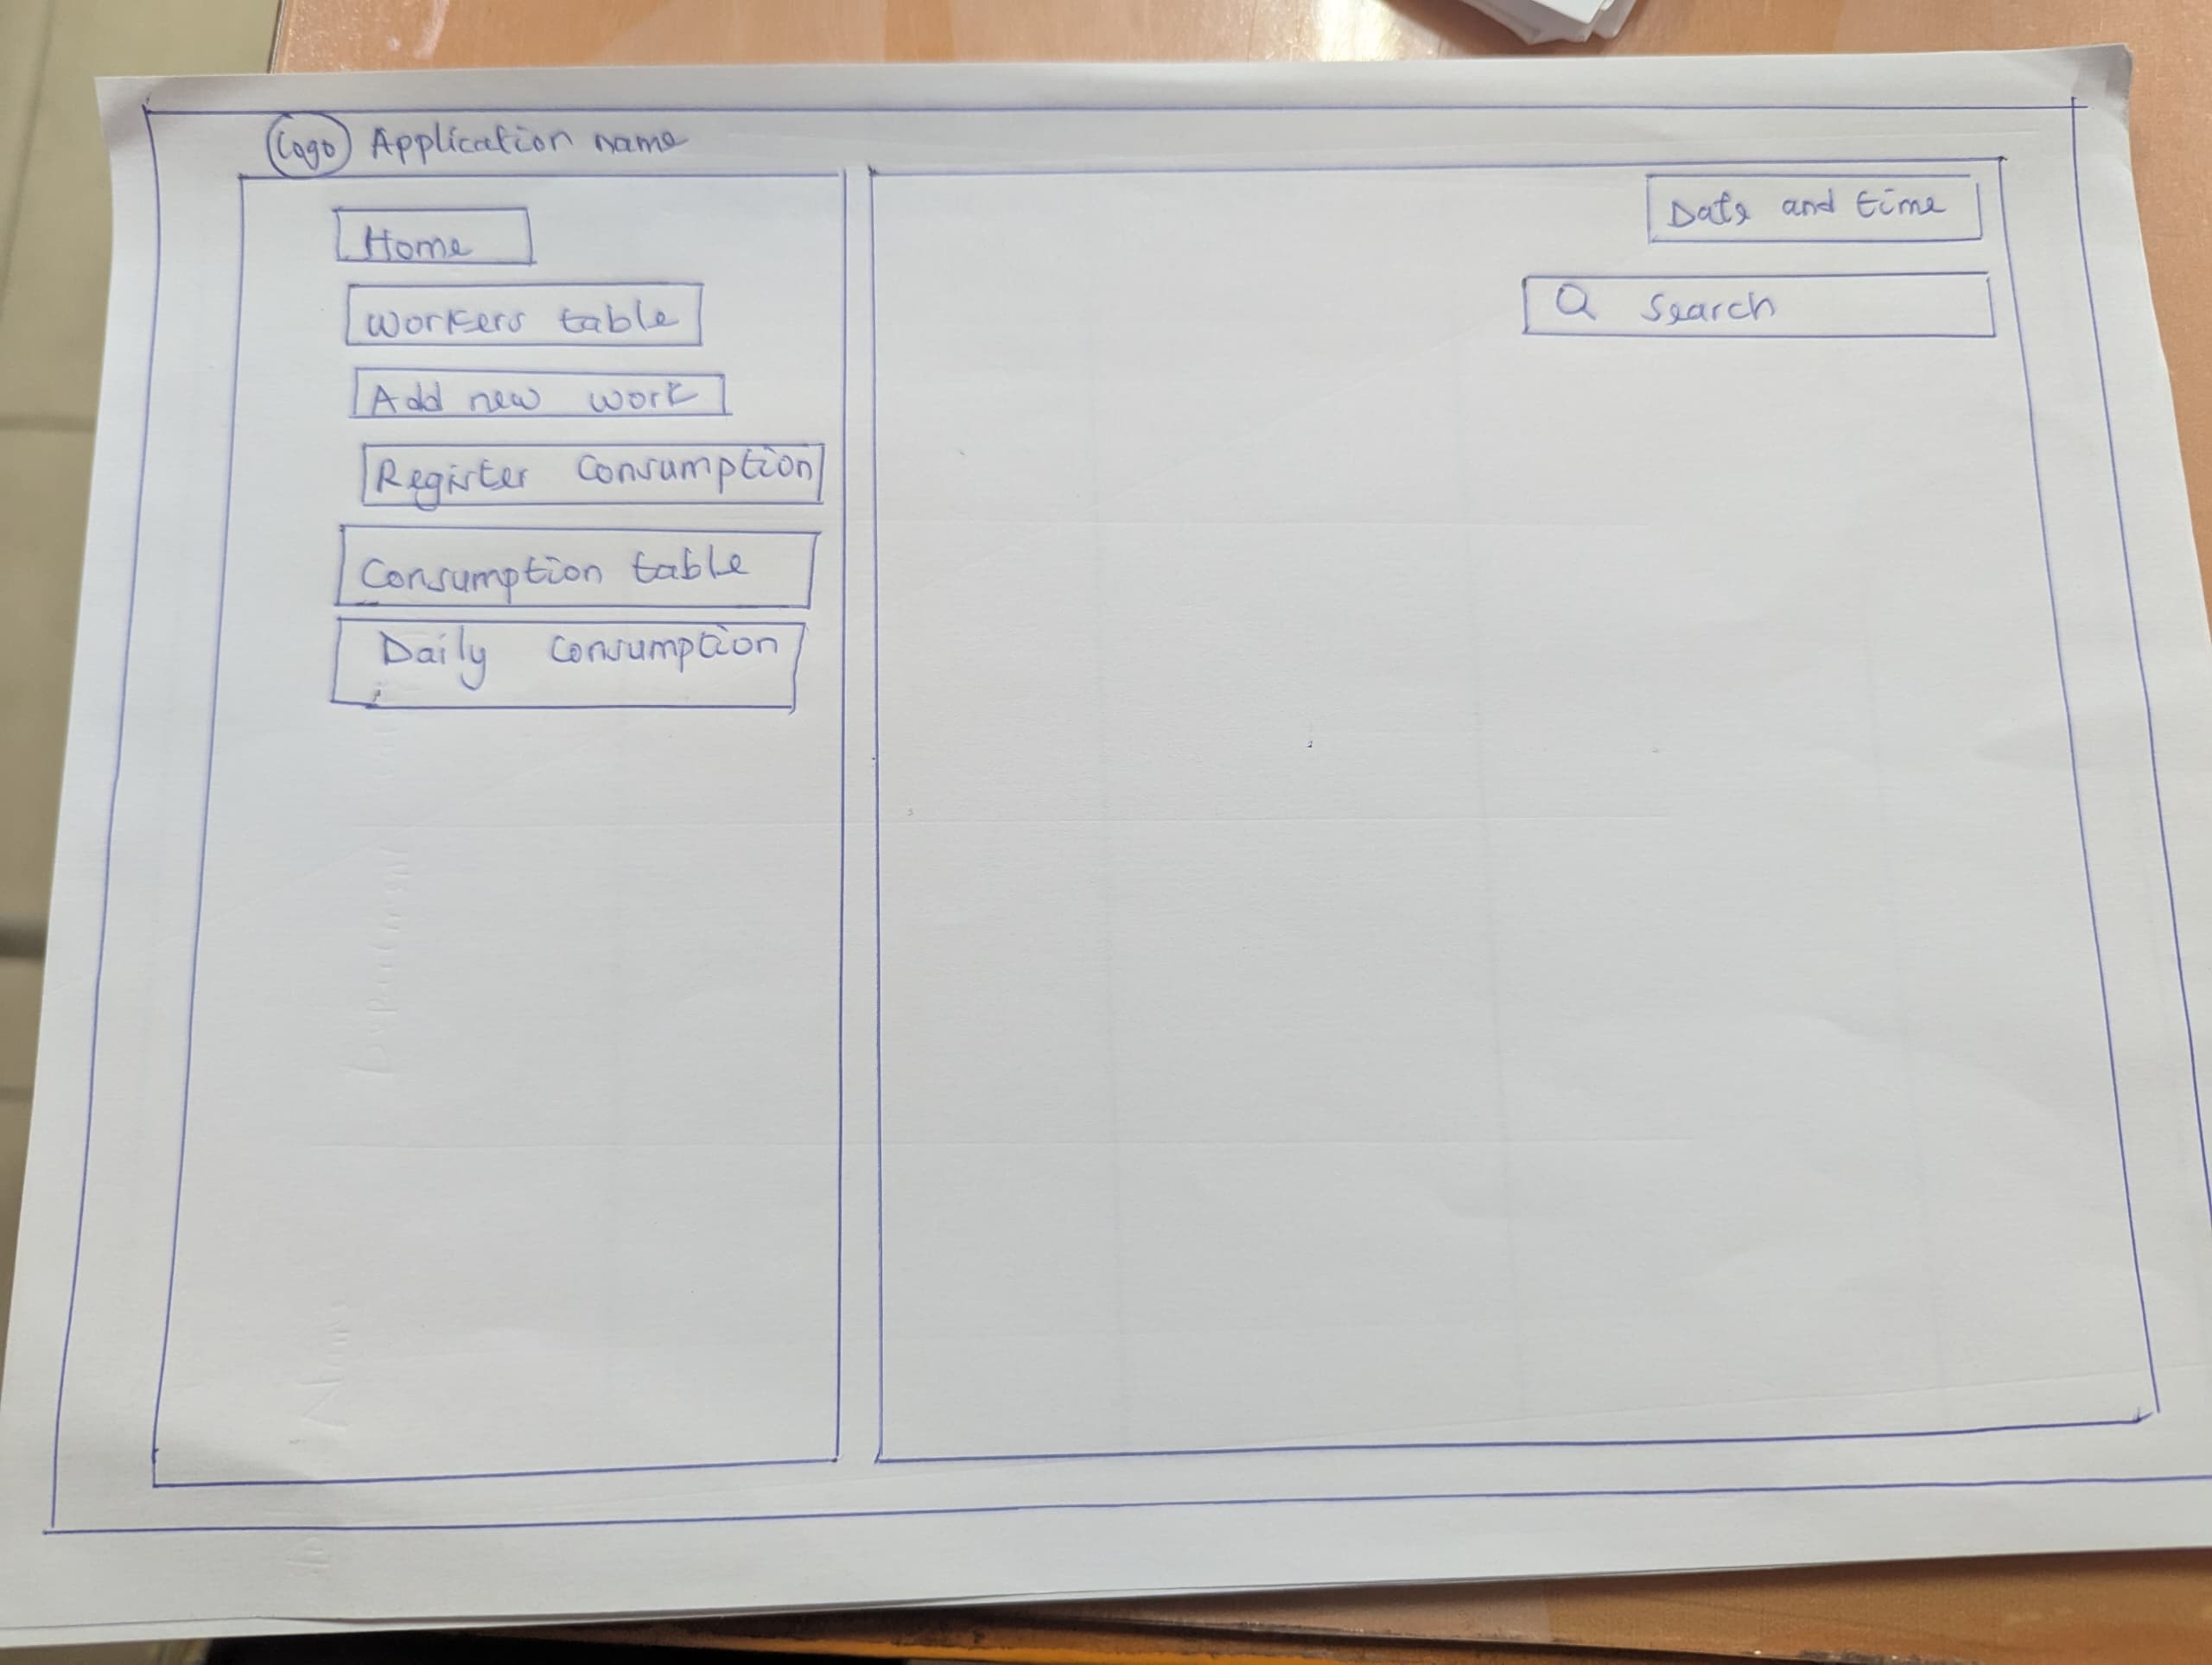 Logo Application name
Home
Workers table
Add new work
Register Consumption
Consumption table
Daily Consumption
Date and time
Search